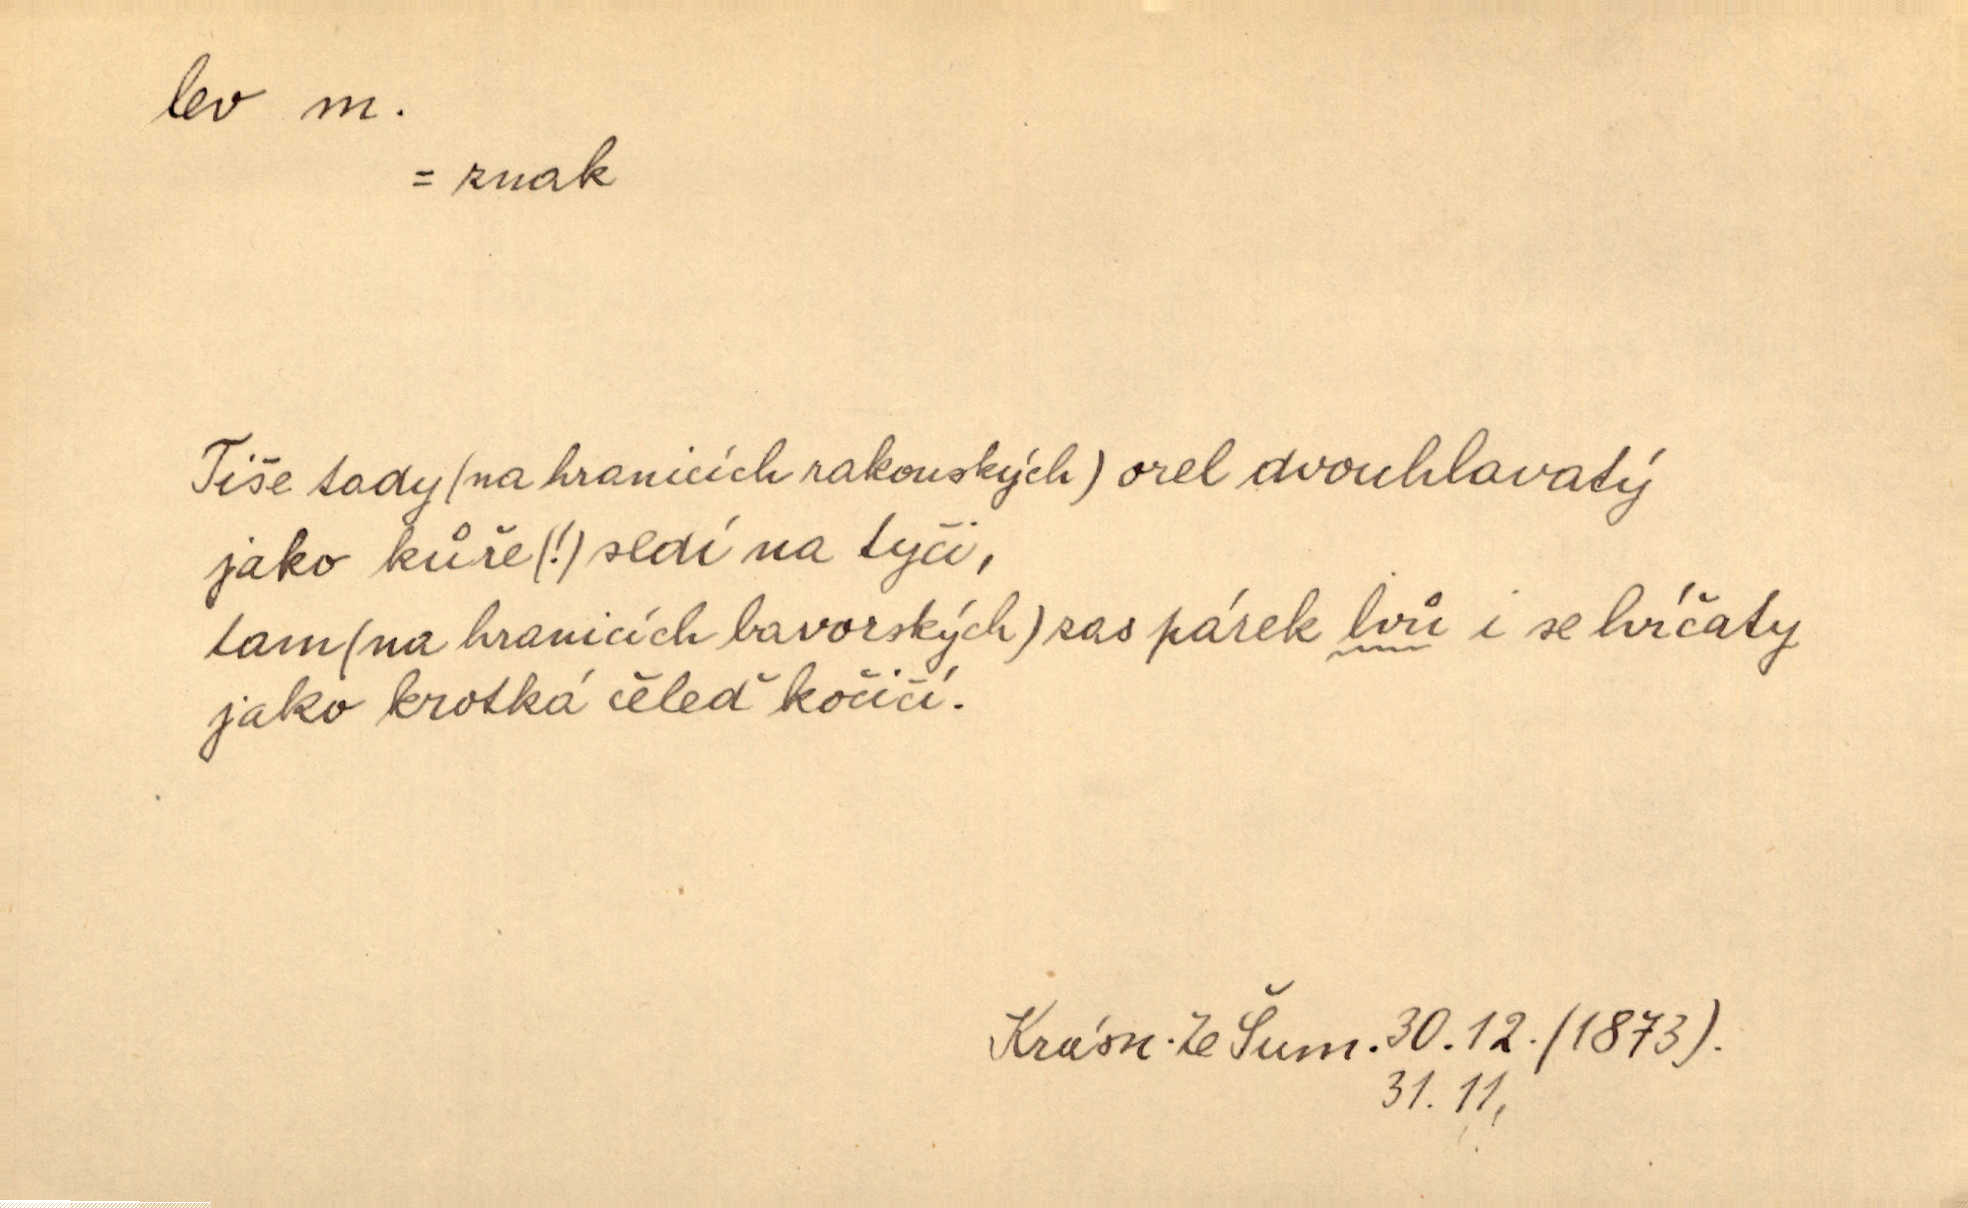 lev m.
= znak
Tiše tady (na hranicích rakouských) orel dvouhlavatý
jako kůře (!) sedí na tyči,
tam (na hranicích bavorských) zas párek lvů i se lvíčaty
jako krotká čeleď kočičí.
Krásn. Ze Šum. 30. 12. (1873).
31. 11,